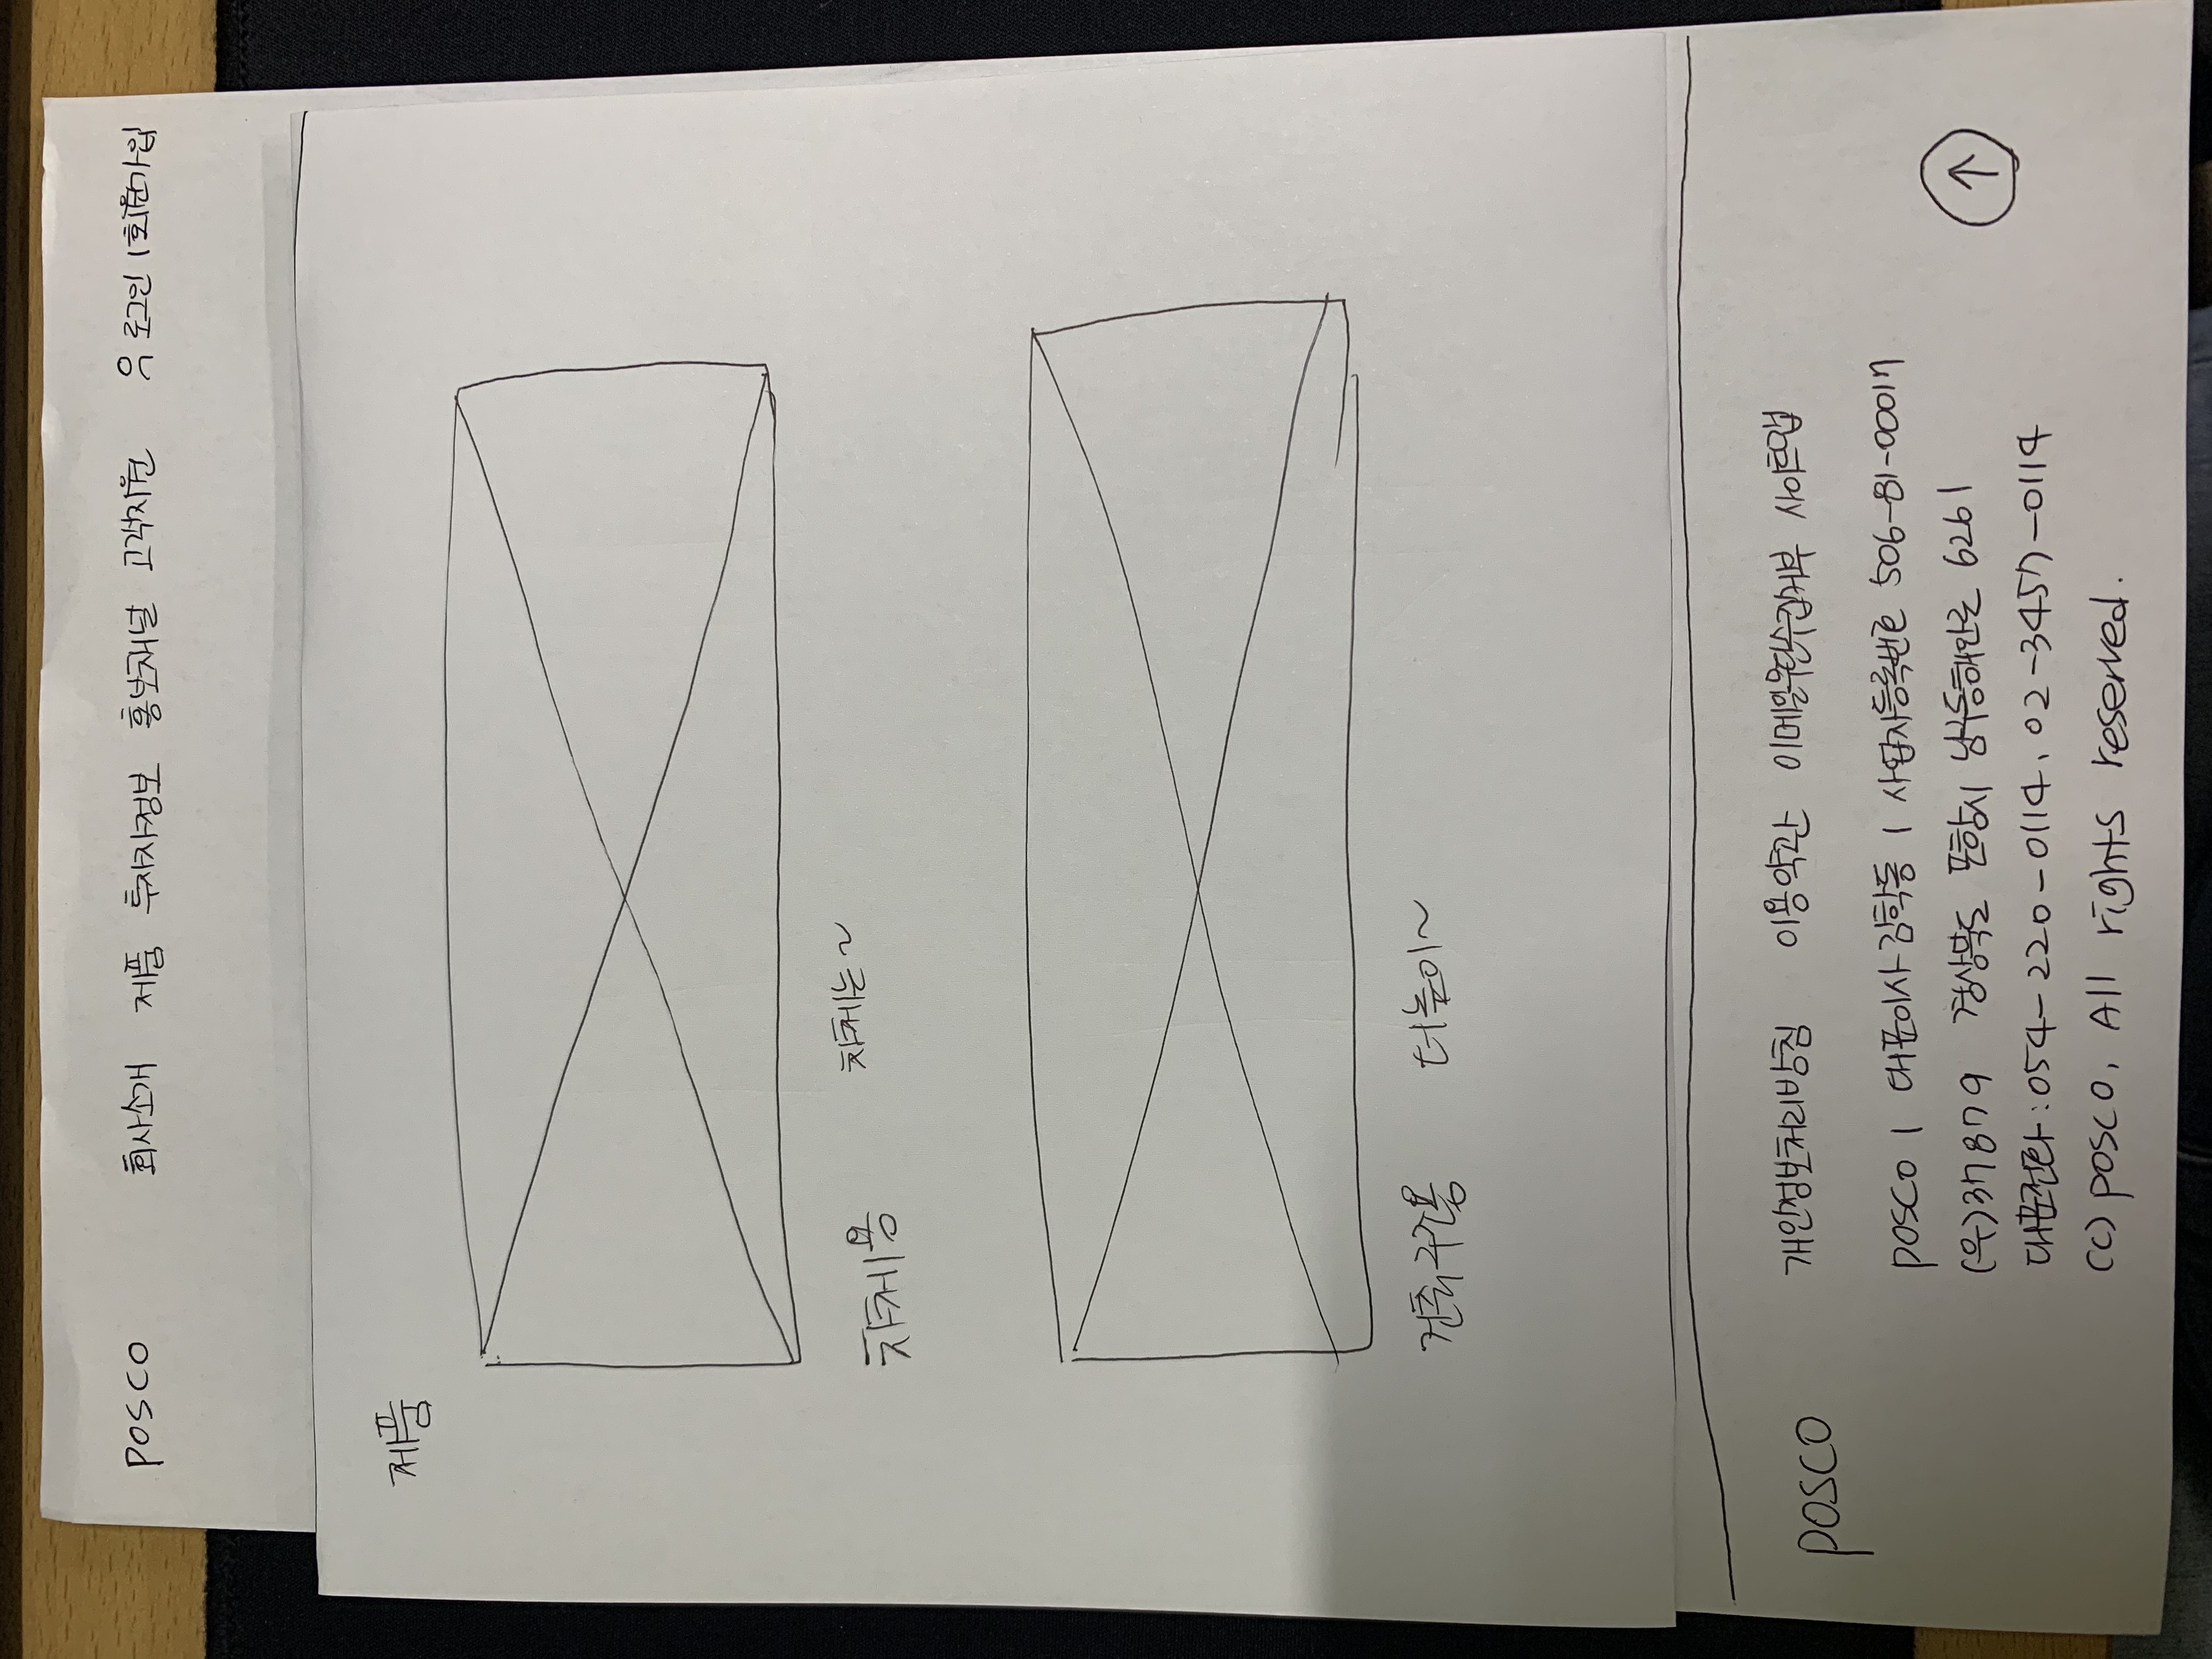 POSCO 회사소개 제품 투자자정보 홍보채널 고객지원 로그인 | 회원가입
제품
차체용 차체는~
건축구조용 더높이~
POSCO 개인정보처리방침 이용약관 이메일무단수집거부 사이트맵
POSCO | 대표이사 김학동 | 사업자등록번호 506-81-00017
(우)37879 경상북도 포항시 남구동해안로 6261
대표전화 : 054-220-0114, 02-3457-0114
(C) POSCO, All rights reserved.